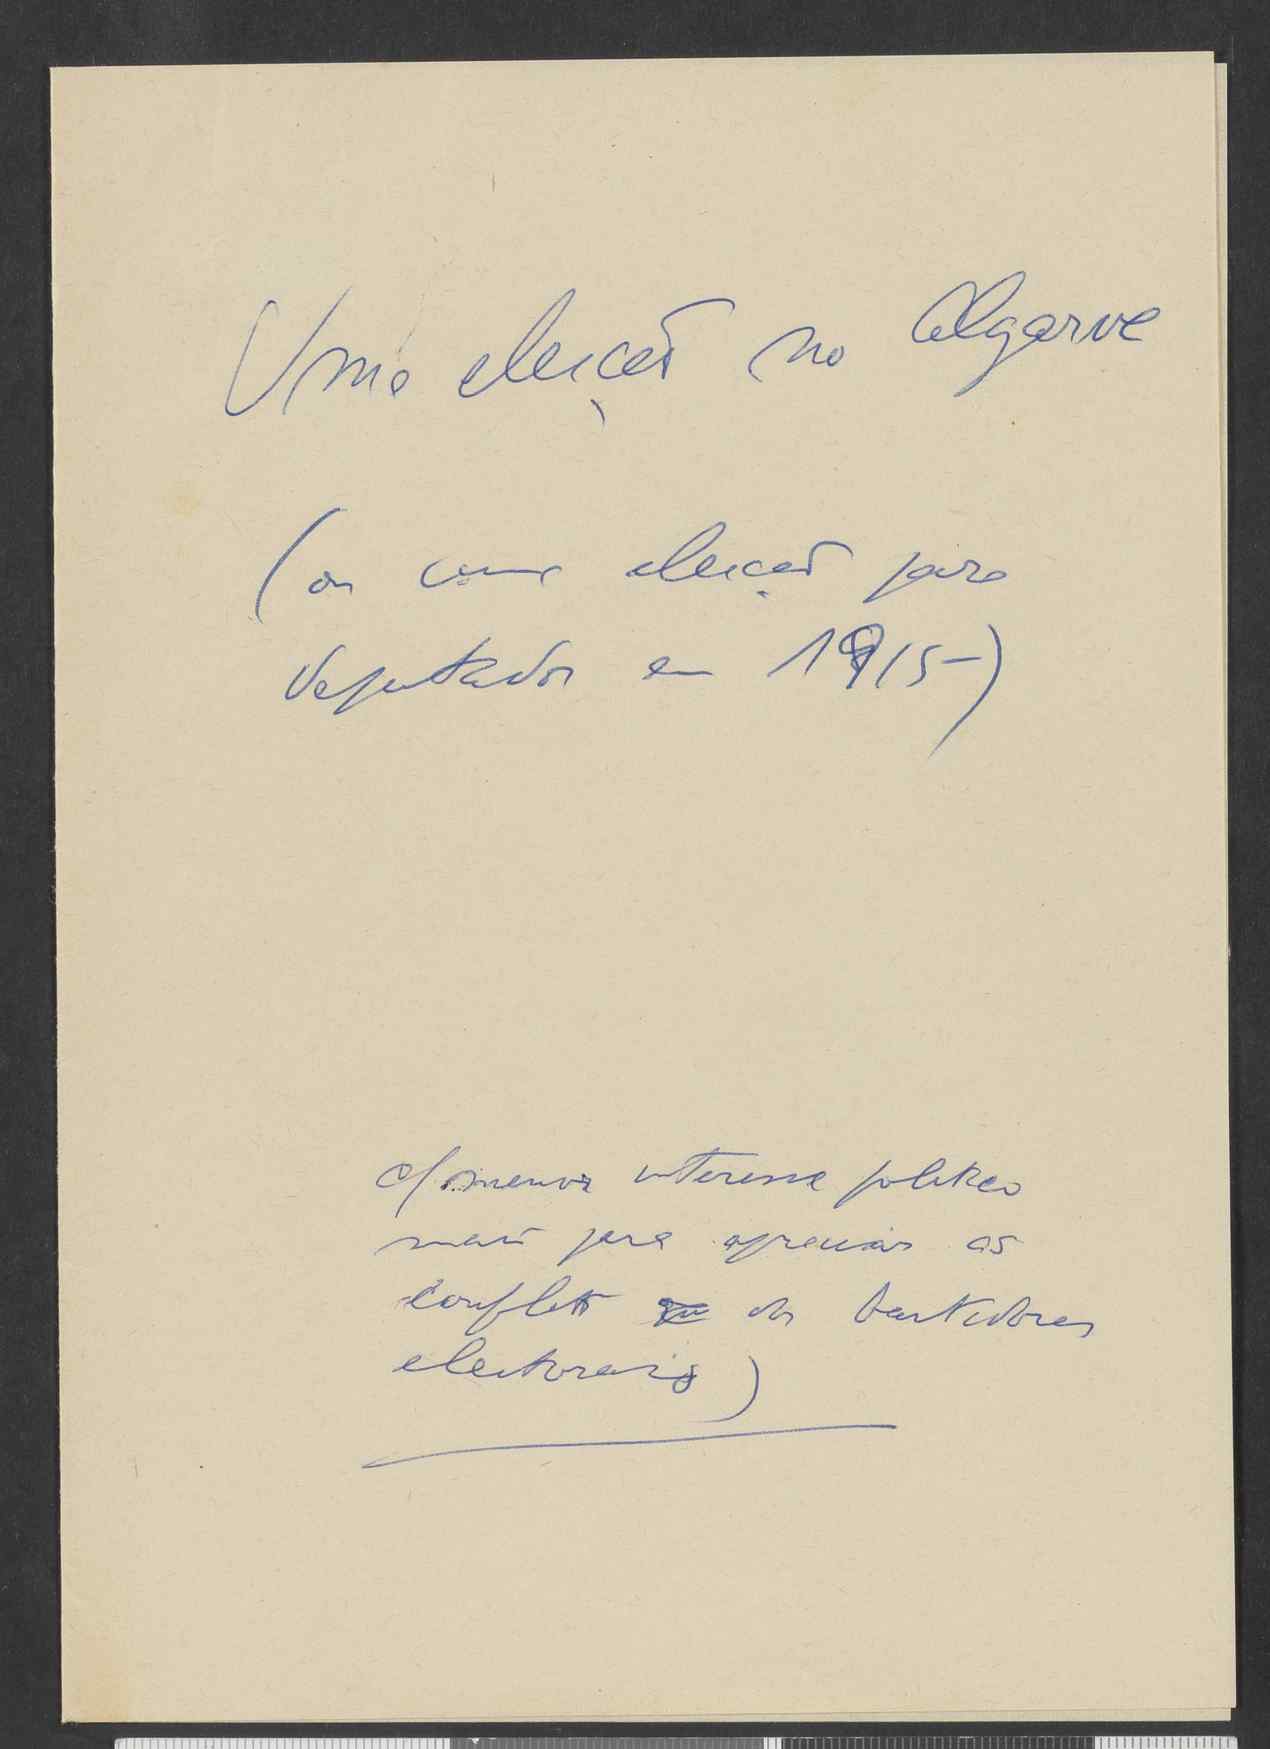 Uma eleição no Algarve
(ou uma eleição para
deputados em 1915-)
c/ menor interesse politico
mais para apreciar os
conflitos dos bastidores
eleitorais)